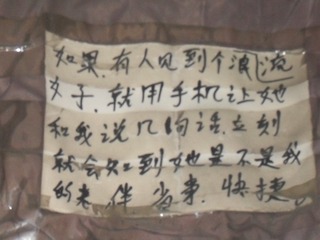 如果有人见到个流浪
女子.就用手机让她
和我说几句话.立刻
就会知到她是不是我
的老伴.省事.快捷。